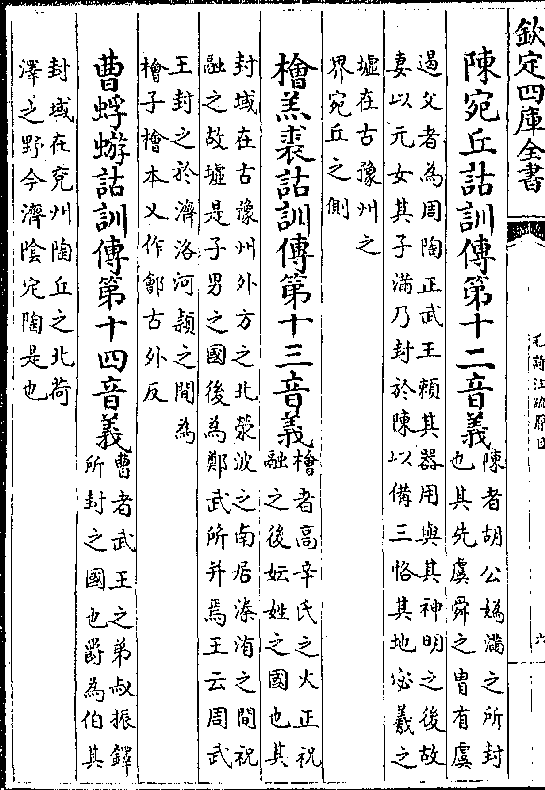 欽定四庫全書
毛詩注疏原目
六
陳宛丘詁訓傳第十二音義
陳者胡公嬀滿之所封
也其先虞舜之胄有虞
遏父者為周陶正武王賴其器用與其神明之後故
妻以元女其子滿乃封於陳以備三恪其地宓羲之
墟在古豫州之
界宛丘之側
檜羔裘詁訓傳第十三音義
檜者高辛氏之火正祝
融之後妘姓之國也其
封域在古豫州外方之北滎波之南居溱洧之間祝
融之故墟是子男之國後為鄭武所并焉王云周武
王封之於濟洛河潁之間為
檜子檜本乂作鄶古外反
曹蜉蝣詁訓傳第十四音義
曹者武王之弟叔振鐸
所封之國也爵為伯其
封域在兖州陶丘之北荷
澤之野今濟陰定陶是也